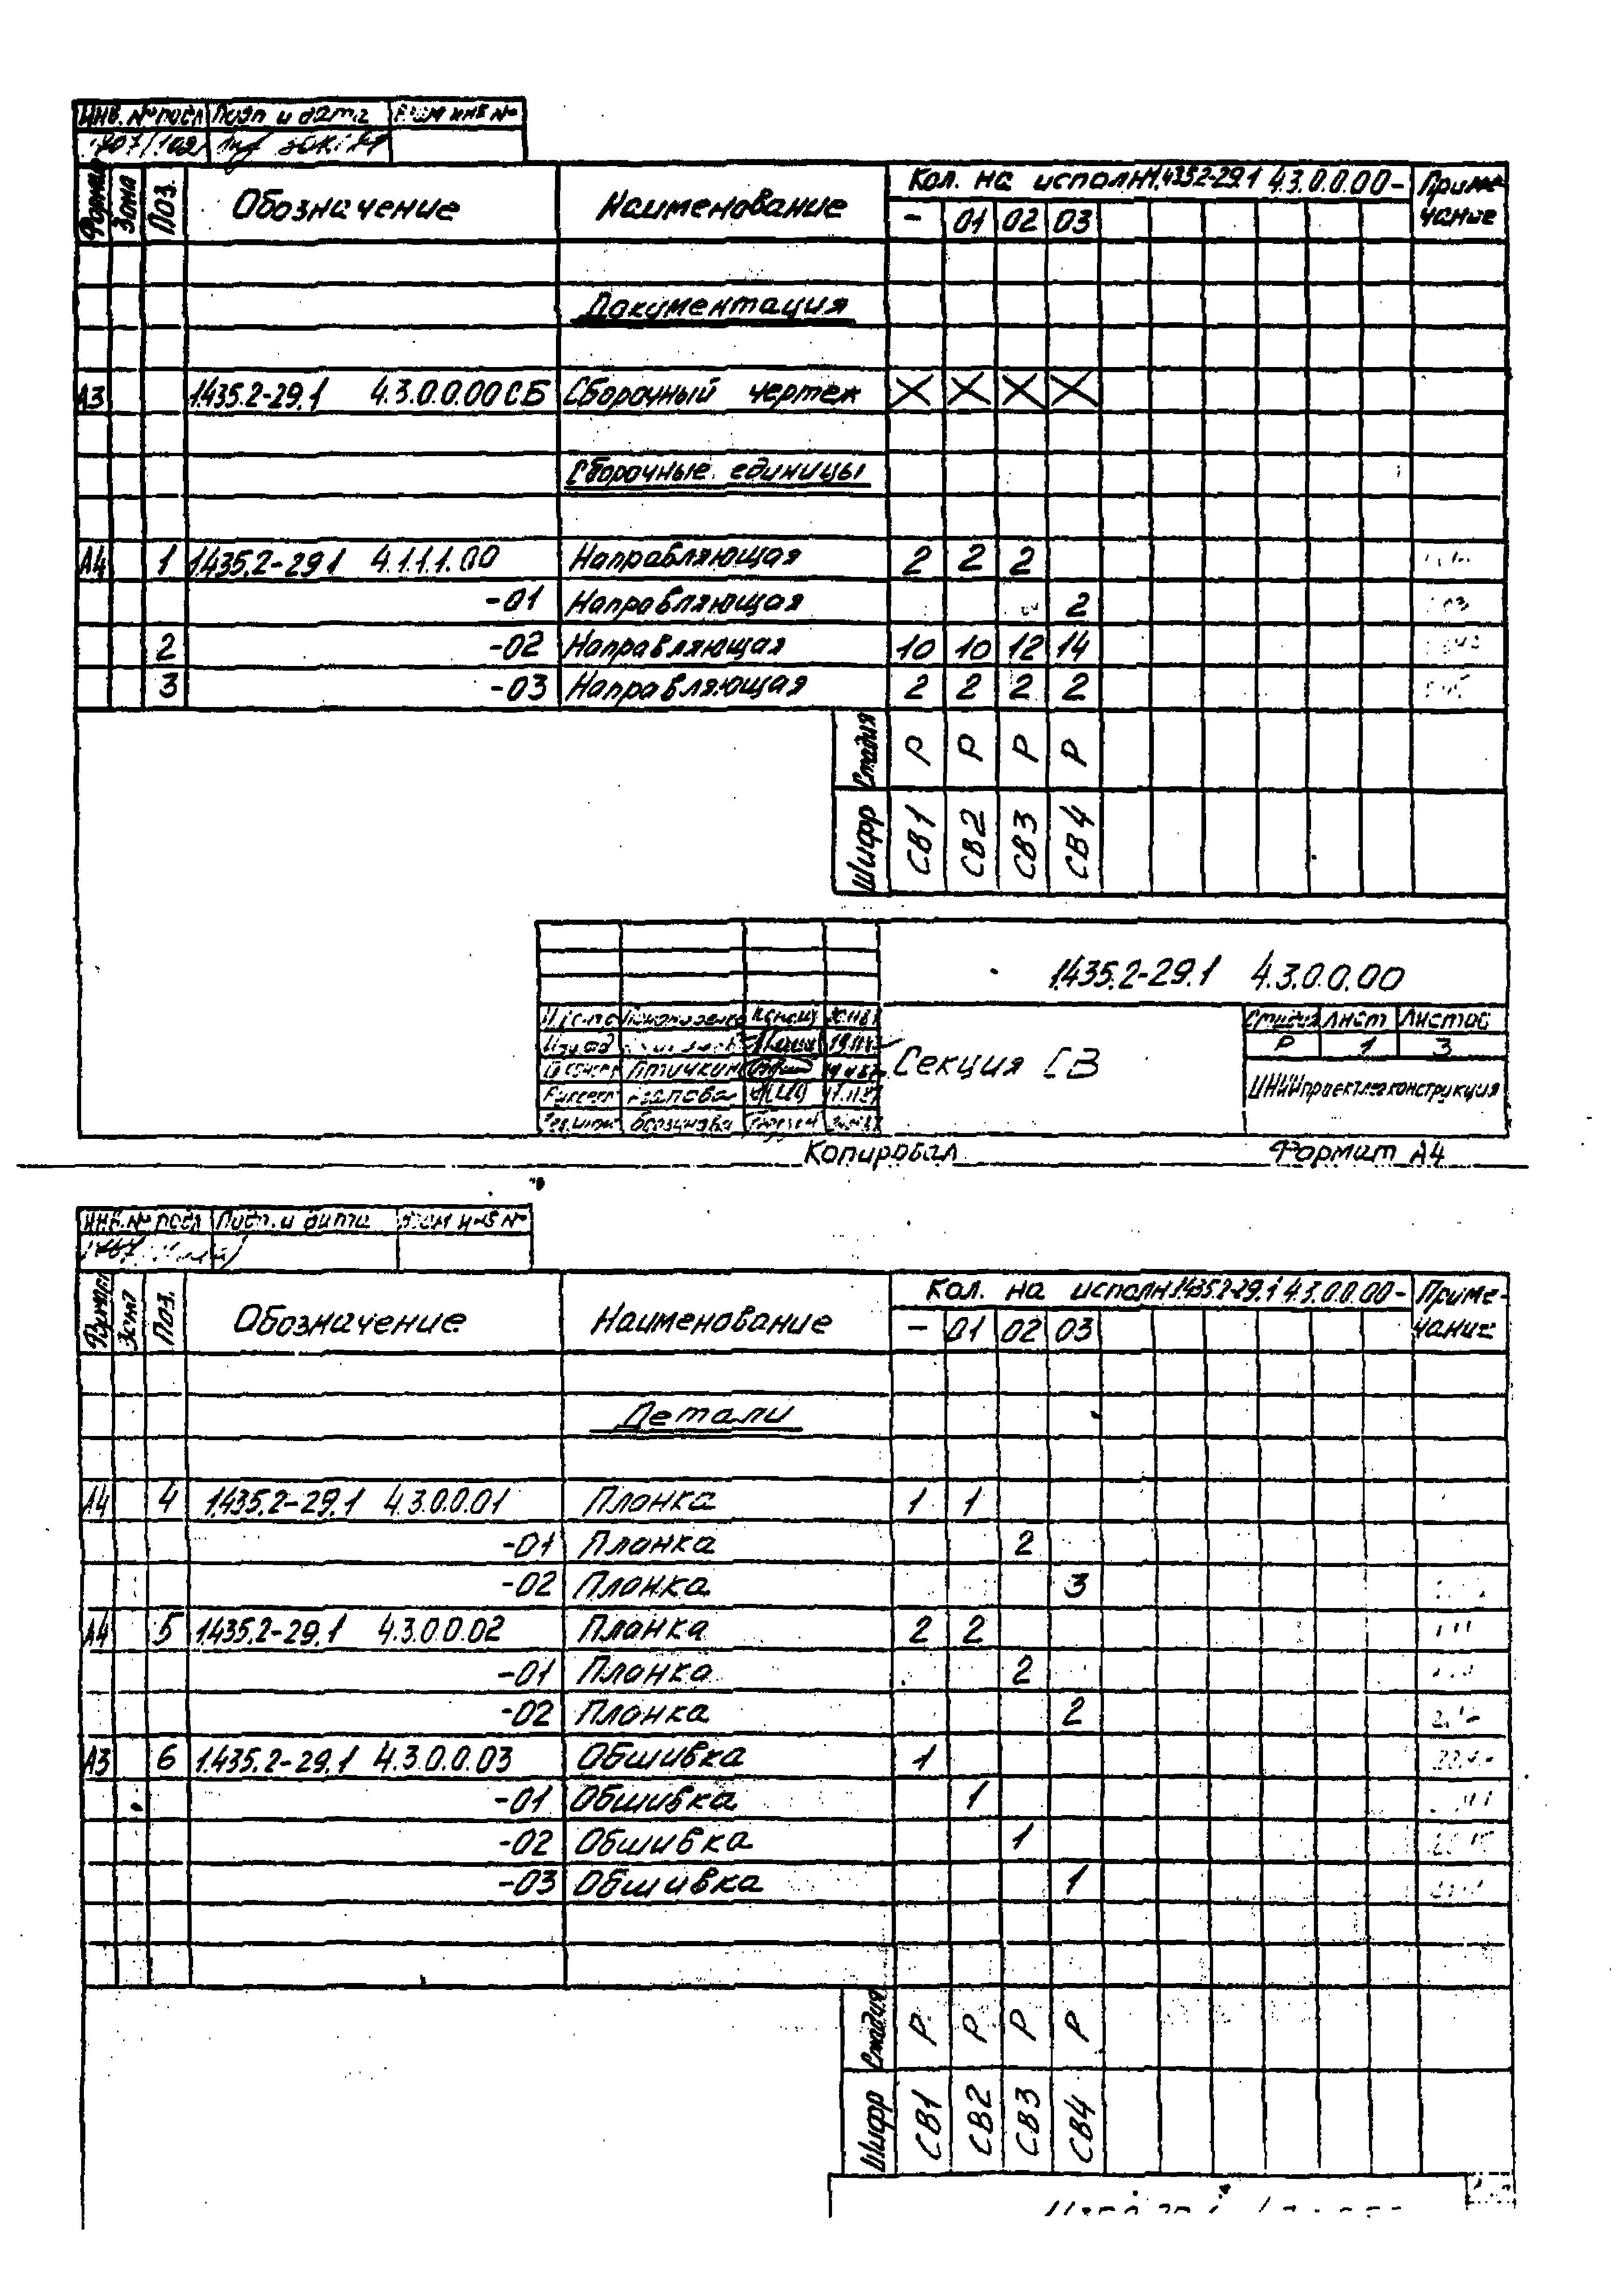 Инв. № подл Подп и дата Взам инв №
Формат Зона Поз. Обозначение Наименование Кол. на исполн 1.435.2-29.1 4.3.0.0.00- Приме
чание
- 01 02 03
Документация
А3 1.435.2-29.1 4.3.0.0.00 СБ Сборочный чертеж X X X X
Сборочные единицы
А4 1 1.435.2-29.1 4.1.1.1.00 Направляющая 2 2 2
-01 Направляющая 2
2 -02 Направляющая 10 10 12 14
3 -03 Направляющая 2 2 2 2
Стадия Р Р Р Р
Шифр СВ1 СВ2 СВ3 СВ4
1.435.2-29.1 4.3.0.0.00
Секция СВ
Стадия Лист Листов
Р 1 3
ЦНИИпроектлегконструкция
Копировал Формат А4
Инв. № подл Подп. и дата Взам инв №
Формат Зона Поз. Обозначение Наименование Кол. на исполн 1.435.2-29.1 4.3.0.0.00- Приме-
чание
- 01 02 03
Детали
А4 4 1.435.2-29.1 4.3.0.0.01 Планка 1 1
-01 Планка 2
-02 Планка 3
А4 5 1.435.2-29.1 4.3.0.0.02 Планка 2 2
-01 Планка 2
-02 Планка 2
А3 6 1.435.2-29.1 4.3.0.0.03 Обшивка 1
-01 Обшивка 1
-02 Обшивка 1
-03 Обшивка 1
Стадия Р Р Р Р
Шифр СВ1 СВ2 СВ3 СВ4